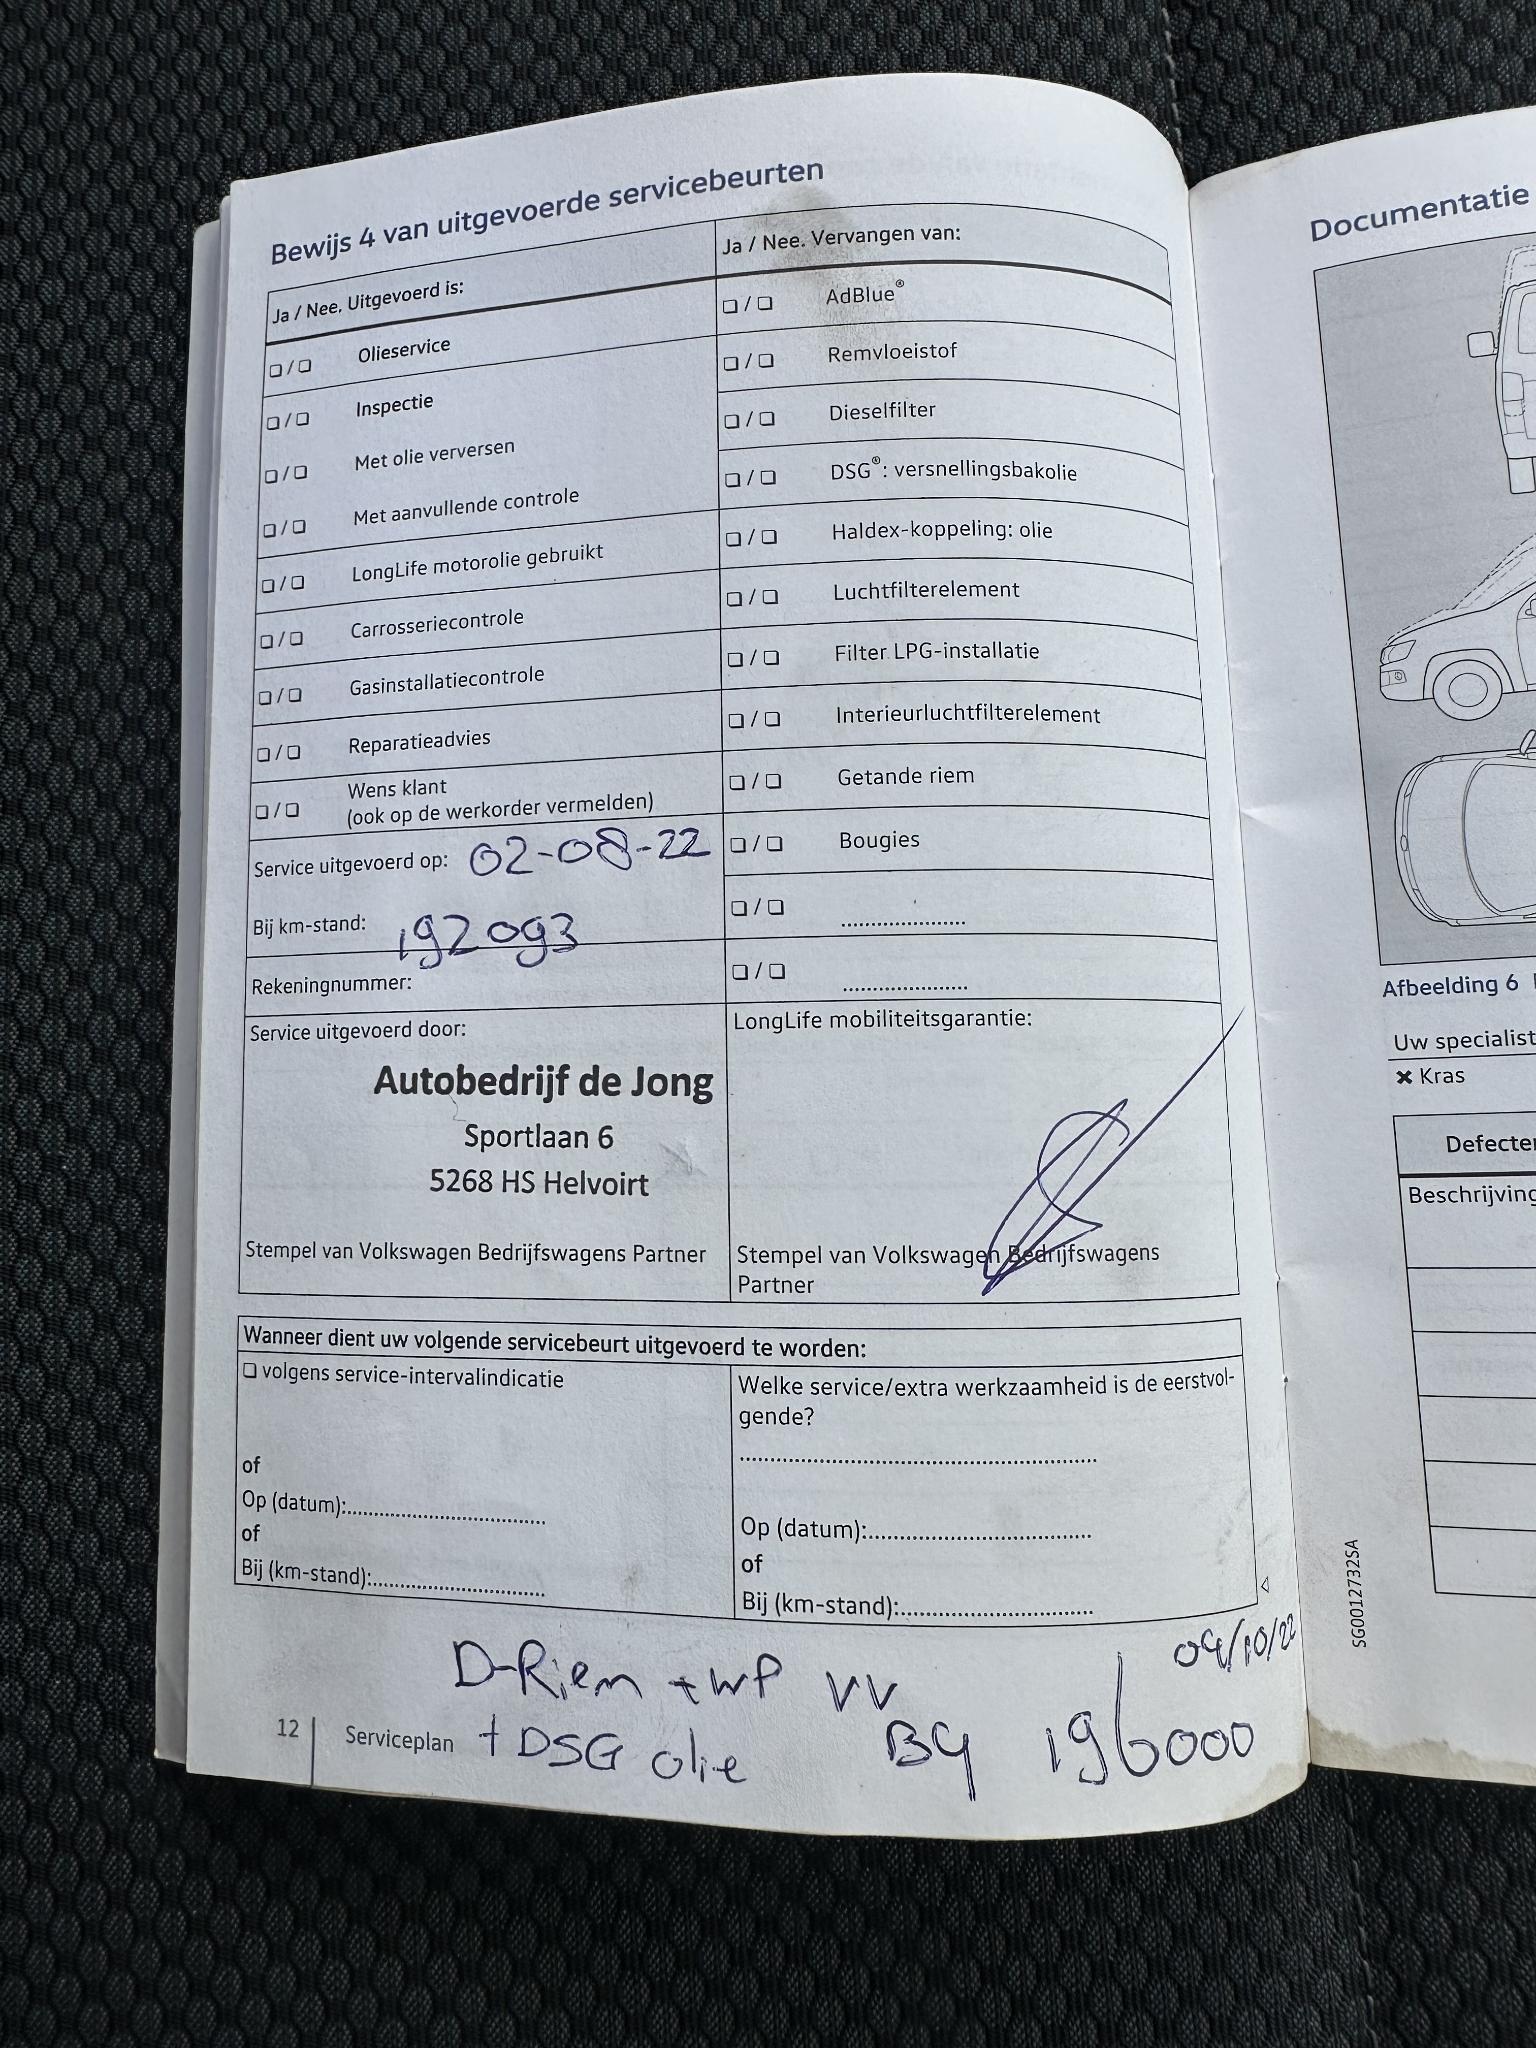 Bewijs 4 van uitgevoerde servicebeurten
Ja / Nee. Uitgevoerd is:
❏ / ❏ Olieservice
❏ / ❏ Inspectie
❏ / ❏ Met olie verversen
❏ / ❏ Met aanvullende controle
❏ / ❏ LongLife motorolie gebruikt
❏ / ❏ Carrosseriecontrole
❏ / ❏ Gasinstallatiecontrole
❏ / ❏ Reparatieadvies
❏ / ❏ Wens klant
(ook op de werkorder vermelden)
Service uitgevoerd op: 02-08-22
Bij km-stand: 192093
Rekeningnummer:
Service uitgevoerd door:
Autobedrijf de Jong
Sportlaan 6
5268 HS Helvoirt
Stempel van Volkswagen Bedrijfswagens Partner
Ja / Nee. Vervangen van:
❏ / ❏ AdBlue®
❏ / ❏ Remvloeistof
❏ / ❏ Dieselfilter
❏ / ❏ DSG®: versnellingsbakolie
❏ / ❏ Haldex-koppeling: olie
❏ / ❏ Luchtfilterelement
❏ / ❏ Filter LPG-installatie
❏ / ❏ Interieurluchtfilterelement
❏ / ❏ Getande riem
❏ / ❏ Bougies
❏ / ❏ ....................
❏ / ❏ ....................
LongLife mobiliteitsgarantie:
Stempel van Volkswagen Bedrijfswagens
Partner
Wanneer dient uw volgende servicebeurt uitgevoerd te worden:
❏ volgens service-intervalindicatie
of
Op (datum):................................
of
Bij (km-stand):............................
Welke service/extra werkzaamheid is de eerstvol-
gende?
..........................................................
Op (datum):....................................
of
Bij (km-stand):...............................
04/10/22
D-Riem + WP VV
+ DSG olie By 196000
12 Serviceplan
Documentatie
Afbeelding 6
Uw specialist
✖ Kras
Defecten
Beschrijving
SG0012732SA